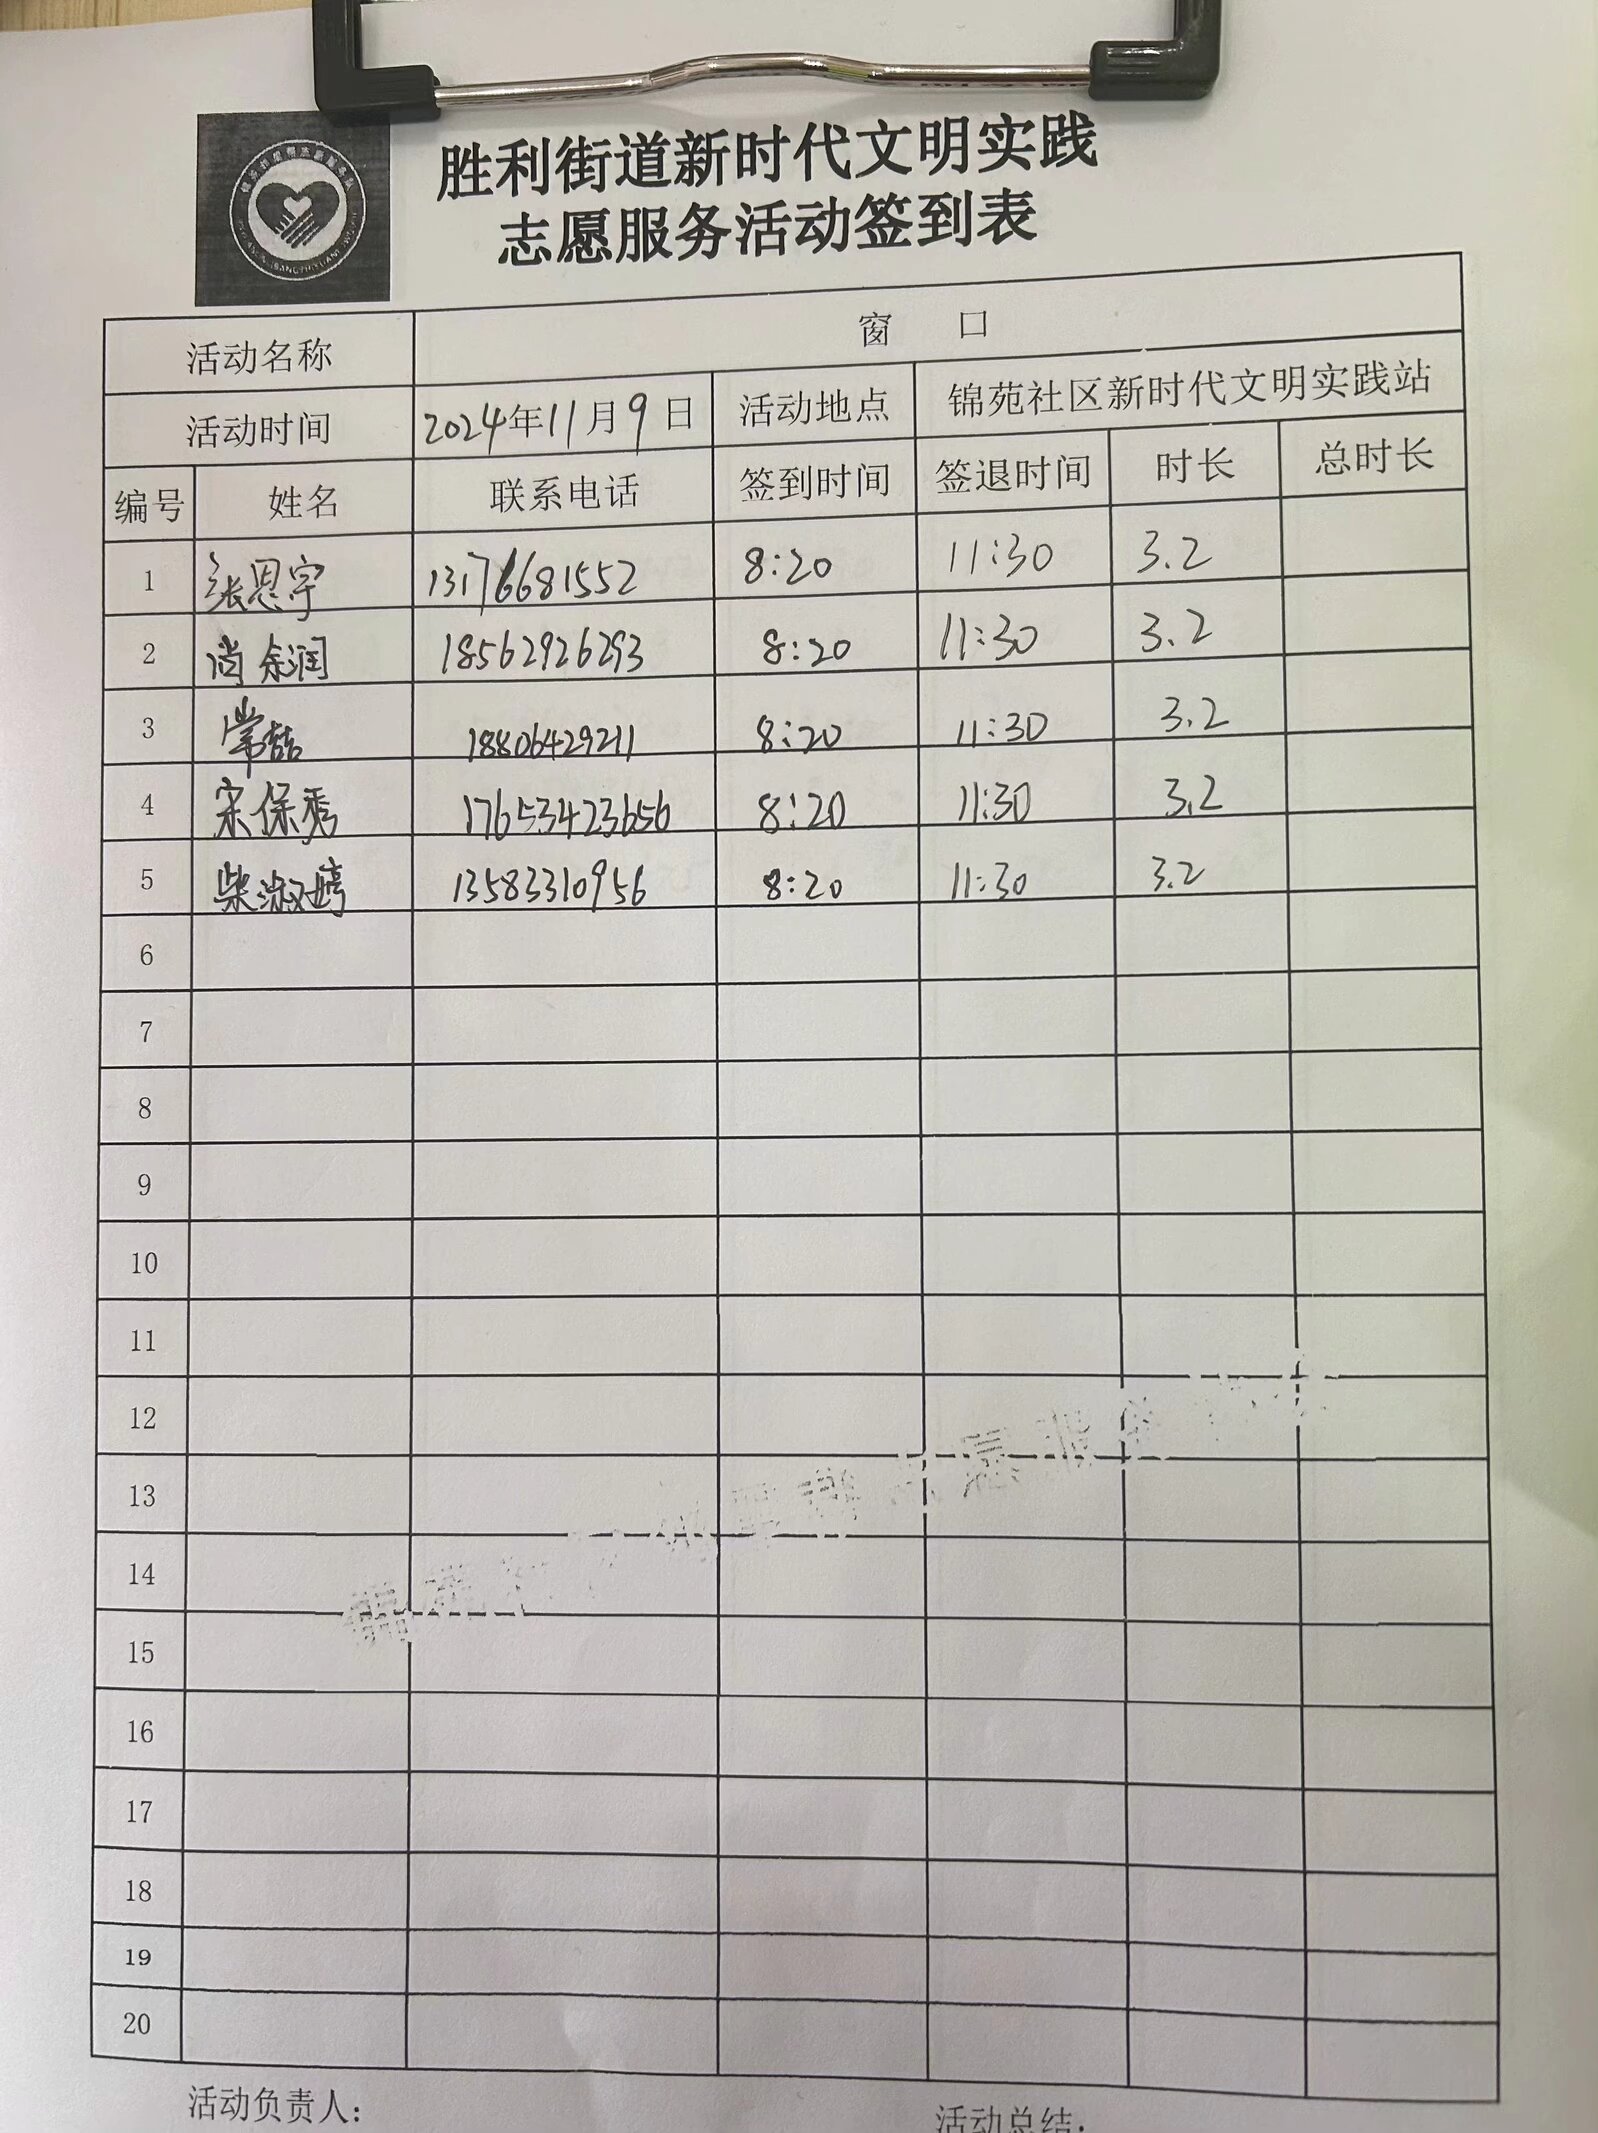 胜利街道新时代文明实践
志愿服务活动签到表
活动名称 窗 口
活动时间 2024年11月9日 活动地点 锦苑社区新时代文明实践站
编号 姓名 联系电话 签到时间 签退时间 时长 总时长
1 张恩宇 13176681552 8:20 11:30 3.2
2 尚余润 18562926293 8:20 11:30 3.2
3 常喆 18806429211 8:20 11:30 3.2
4 宋保秀 17653423656 8:20 11:30 3.2
5 柴淑婷 13583310956 8:20 11:30 3.2
6
7
8
9
10
11
12
13
14
15
16
17
18
19
20
活动负责人: 活动总结: